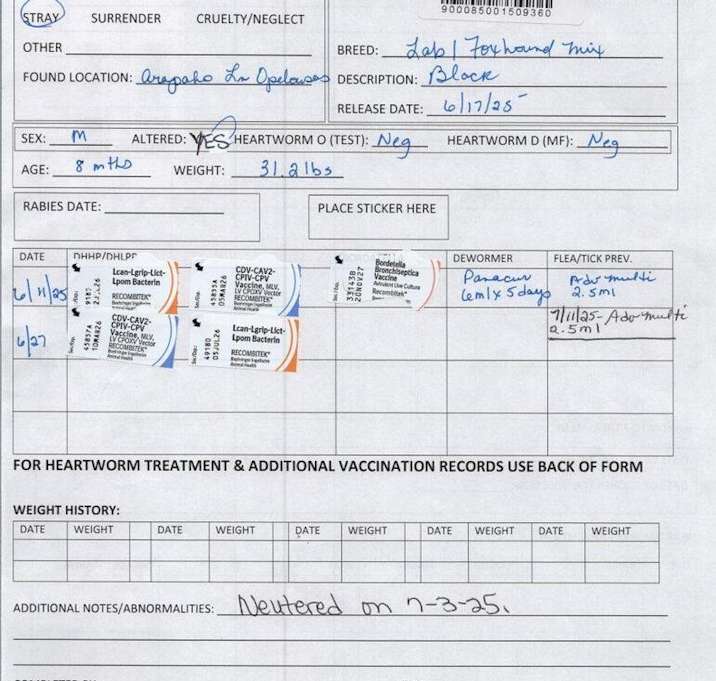 900085001509360
STRAY SURRENDER CRUELTY/NEGLECT
OTHER
BREED: Lab / Foxhound mix
FOUND LOCATION: Arapaho Ln Opelousas
DESCRIPTION: Black
RELEASE DATE: 6/17/25
SEX: M ALTERED: YES HEARTWORM O (TEST): Neg HEARTWORM D (MF): Neg
AGE: 8 mths WEIGHT: 31.2 lbs
RABIES DATE:
PLACE STICKER HERE
DATE DHHP/DHLPP DEWORMER FLEA/TICK PREV.
6/11/25
Lcan-Lgrip-Lict-
Lpom Bacterin
RECOMBITEK®
Boehringer Ingelheim
Animal Health
CDV-CAV2-
CPIV-CPV
Vaccine, MLV,
LV CPOXV Vector
RECOMBITEK®
Boehringer Ingelheim
Animal Health
Bordetella
Bronchiseptica
Vaccine
Avirulent Live Culture
Recombitek®
Panacur
6ml x 5 days
Adv multi
2.5ml
7/11/25- Adv multi
2.5ml
6/27
CDV-CAV2-
CPIV-CPV
Vaccine, MLV,
LV CPOXV Vector
RECOMBITEK®
Boehringer Ingelheim
Animal Health
Lcan-Lgrip-Lict-
Lpom Bacterin
49180
05JUL26
RECOMBITEK®
Boehringer Ingelheim
Animal Health
FOR HEARTWORM TREATMENT & ADDITIONAL VACCINATION RECORDS USE BACK OF FORM
WEIGHT HISTORY:
DATE WEIGHT DATE WEIGHT DATE WEIGHT DATE WEIGHT DATE WEIGHT
ADDITIONAL NOTES/ABNORMALITIES: Neutered on 7-3-25.